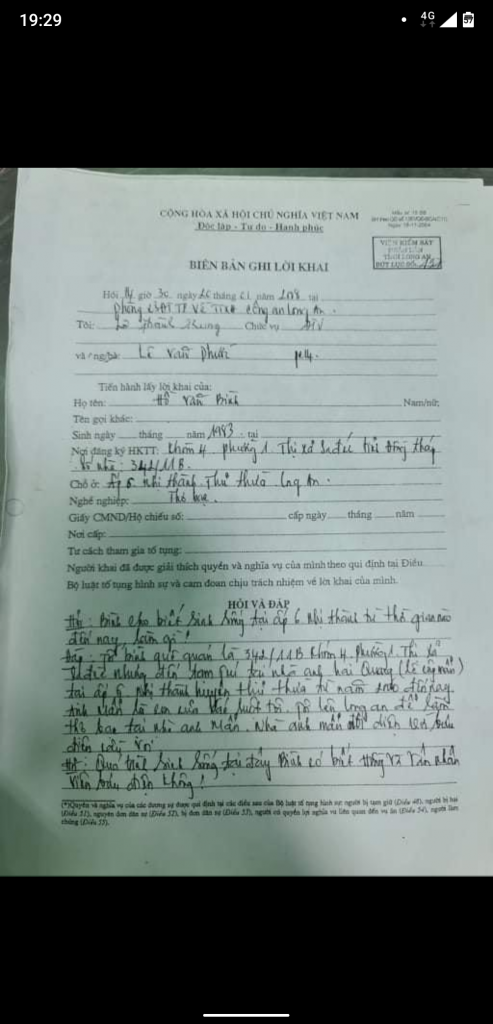 19:29
4G
57
CỘNG HÒA XÃ HỘI CHỦ NGHĨA VIỆT NAM
Độc lập - Tự do - Hạnh phúc
VIỆN KIỂM SÁT
BÚT LỤC SỐ:
BIÊN BẢN GHI LỜI KHAI
Hồi giờ 30 ngày tháng 01 năm tại
phòng công an Long An.
Tôi: Chức vụ ĐTV
và ông/bà: Lê Văn
Tiến hành lấy lời khai của:
Họ tên: Hồ Văn Bình Nam/nữ:
Tên gọi khác:
Sinh ngày tháng năm 1983 tại
Nơi đăng ký HKTT: Khóm 4 phường 1. Thị xã Sa đéc tỉnh Đồng Tháp
Số nhà: 342/11B.
Chỗ ở: Ấp 6 nhị thành Thủ thừa Long An.
Nghề nghiệp: Thợ bạc.
Giấy CMND/Hộ chiếu số: cấp ngày tháng năm
Nơi cấp:
Tư cách tham gia tố tụng:
Người khai đã được giải thích quyền và nghĩa vụ của mình theo qui định tại Điều
Bộ luật tố tụng hình sự và cam đoan chịu trách nhiệm về lời khai của mình.
HỎI VÀ ĐÁP
Hỏi: Bình cho biết sinh sống tại ấp 6 nhị thành từ thời gian nào
đến nay, làm gì?
Đáp: Tôi bình quê quán là 342/11B Khóm 4. Phường 1. Thị xã
Sađéc nhưng đến tạm trú tại nhà anh hai
tại ấp 6 nhị thành huyện thủ thừa từ năm đến nay.
Anh Mẫn là con của tôi. Tôi lên long an để làm
thợ bạc tại nhà anh Mẫn. Nhà anh mẫn đối diện bưu
điện
Hỏi: Quá trình sinh sống tại đây Bình có biết Hồng và Vân nhân
viên bưu điện không?
(*)Quyền và nghĩa vụ của các đương sự được qui định tại các điều sau của Bộ luật tố tụng hình sự: người bị tạm giữ (Điều 48), người bị hại
(Điều 51), nguyên đơn dân sự (Điều 52), bị đơn dân sự (Điều 53), người có quyền lợi nghĩa vụ liên quan đến vụ án (Điều 54), người làm
chứng (Điều 55).